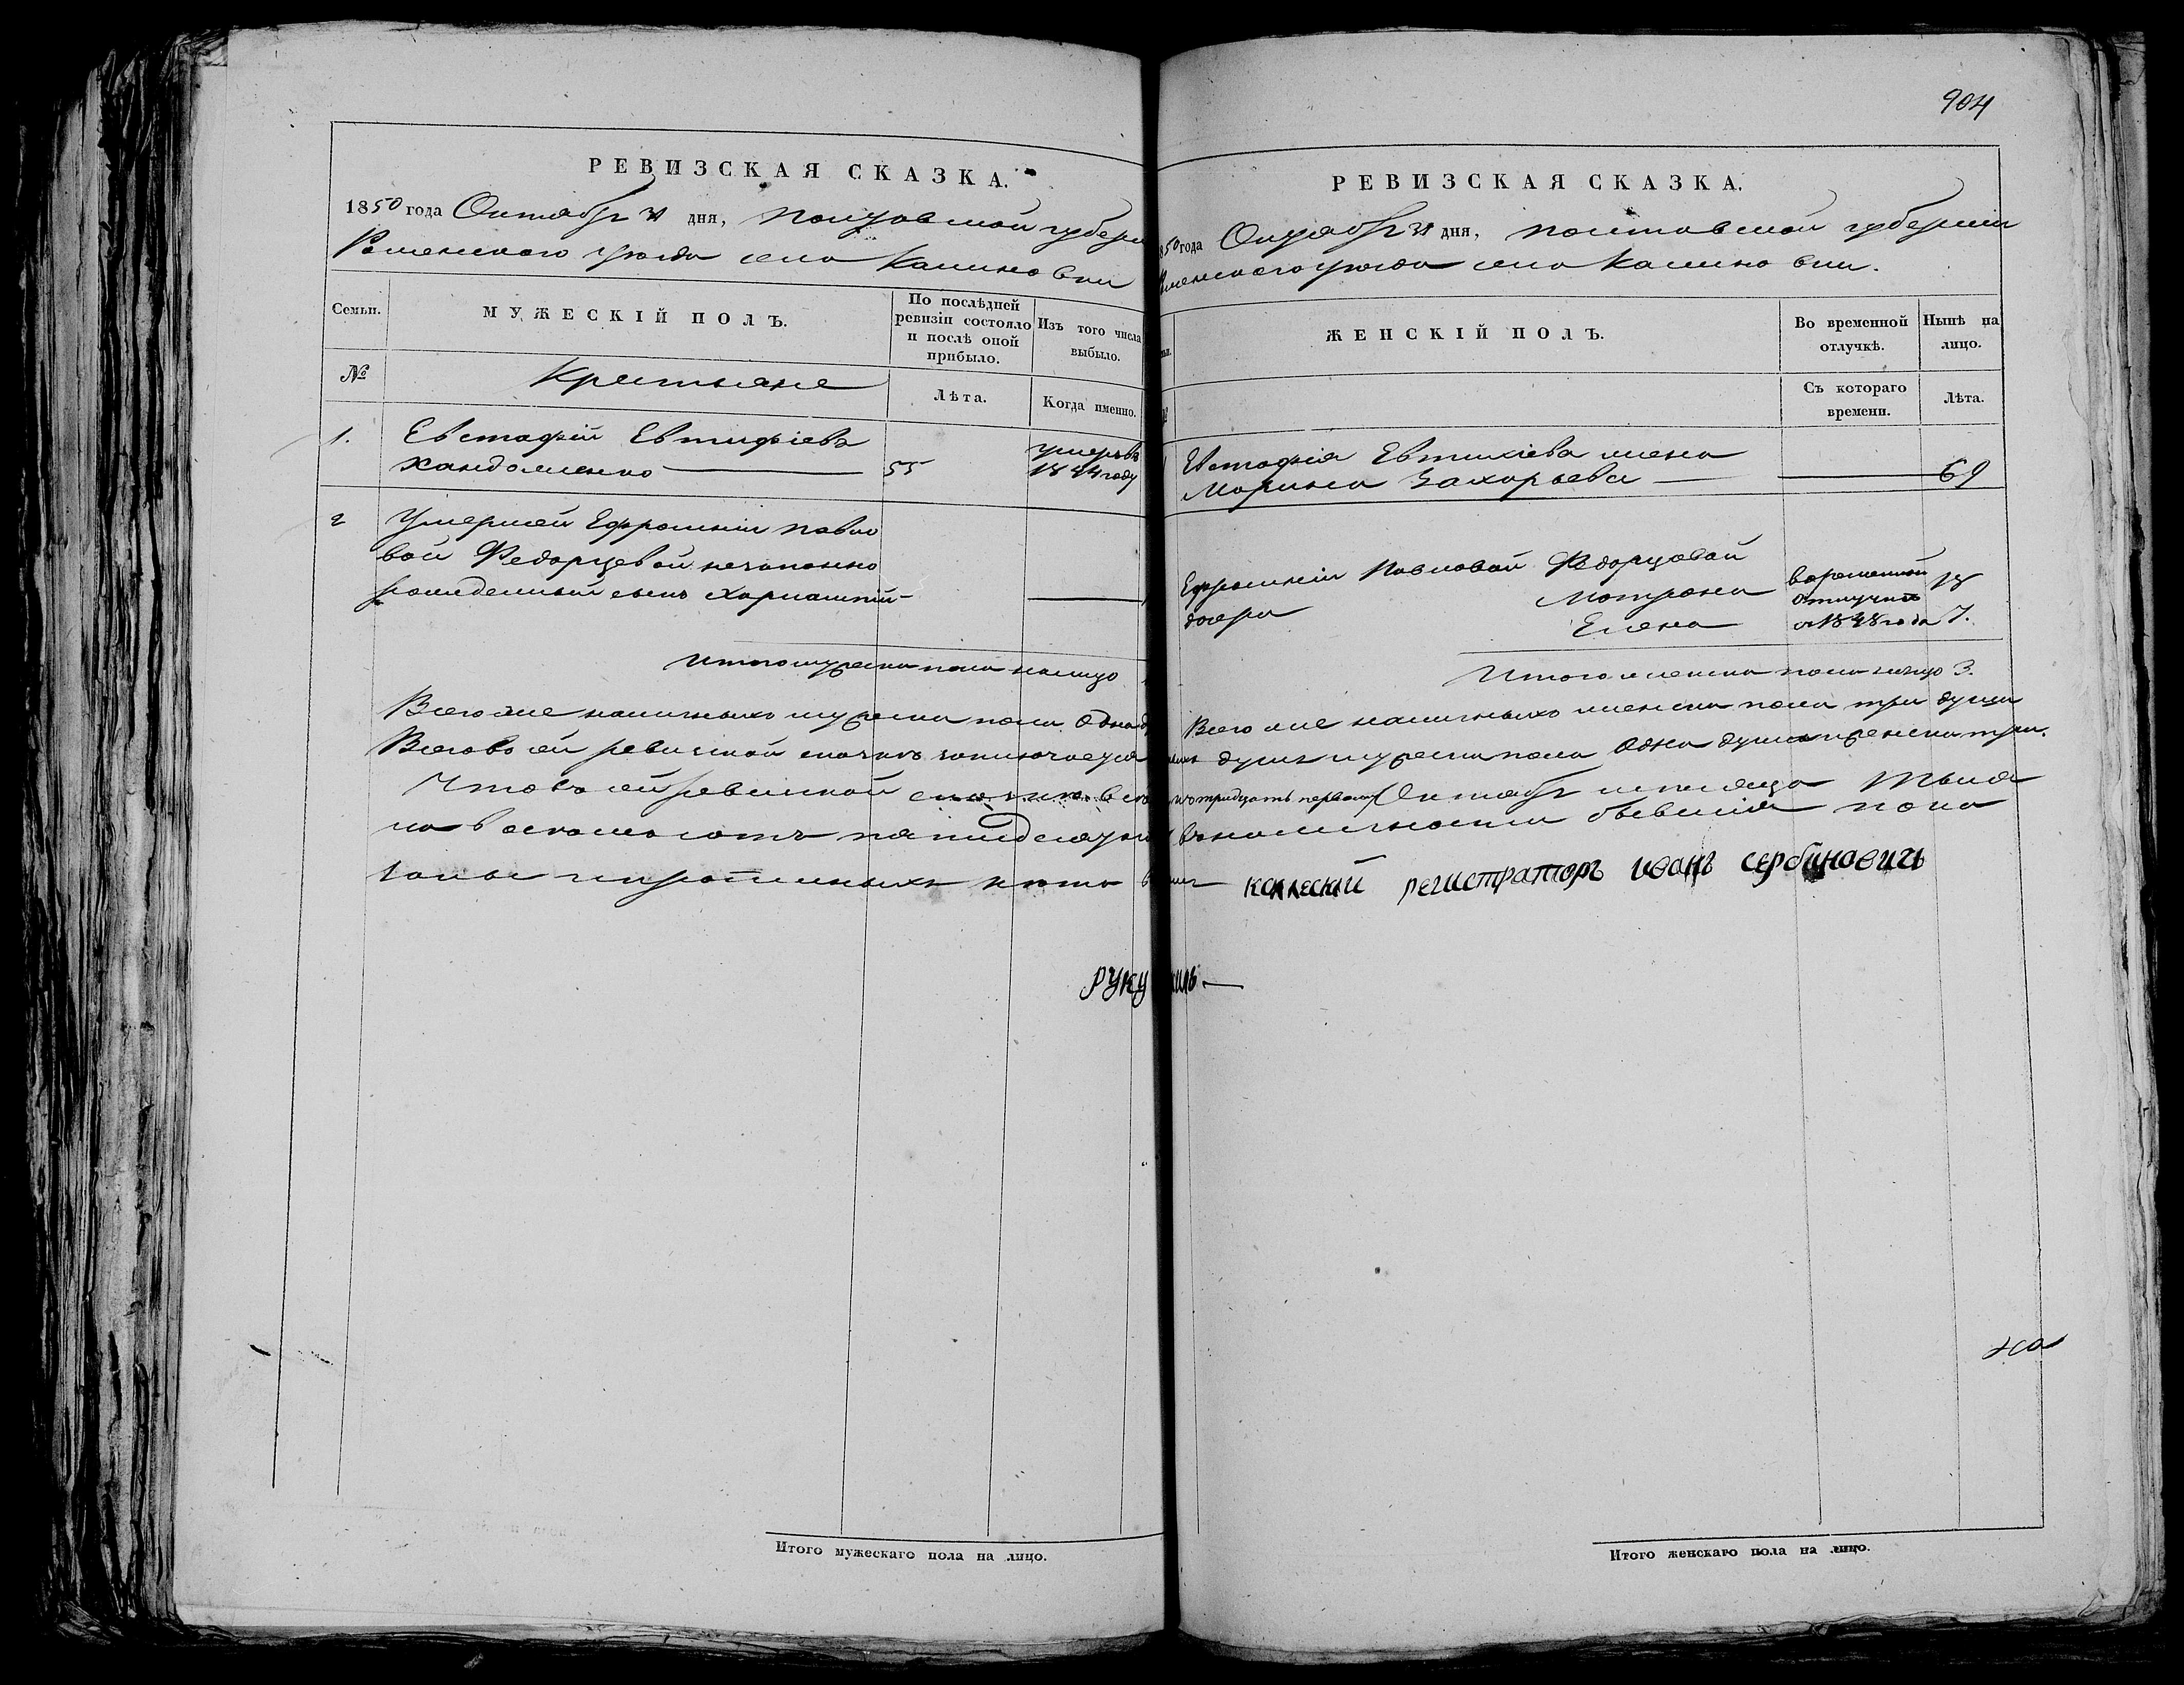 904
РЕВИЗСКАЯ СКАЗКА.
1850 года Октября 31 дня, Полтавской губерн
Роменского уезда села Калиновки
Семьи.
МУЖЕСКІЙ ПОЛЪ.
По послѣдней ревизіи состояло и послѣ оной прибыло.
Изъ того числа выбыло.
№
Крестьяне
Лѣта.
Когда именно.
1.
Евстафій Евтифіевъ
Хандоменко
55
умеръ въ
1844 году
2
Умершей Ефросиніи Павло
вой Федорцевой незаконно
рожденный сынъ Харлампій
Итого мужеска пола налицо
Всего же наличныхъ мужеска пола одна д
Всего въ сей ревизской сказкѣ заключается
Что въ сей ревизской сказкѣ
ча восемьсотъ пятидесят
РУКУ
Итого мужескаго пола на лицо.
РЕВИЗСКАЯ СКАЗКА.
850 года Октября 31 дня, Полтавской губерніи
менского уезда села Калиновки.
ЖЕНСКІЙ ПОЛЪ.
Во временной отлучкѣ.
Нынѣ на лицо.
Съ котораго времени.
Лѣта.
Евстафія Евтихіева жена
Марина Захарьева
69
Ефросиніи Павловой Федорцовой
дочери
Матрона
Елена
во временной
отлучкѣ
с 1848 года
7.
Итого женска пола налицо 3.
Всего же наличныхъ женска пола три души
душъ мужеска пола одна душа и женска три.
тридцать первого Октября месяца Тыся
въ наличности бывшія пока
колеский регистраторъ иванъ сербиновичъ
жилъ
на
Итого женскаго пола на лицо.